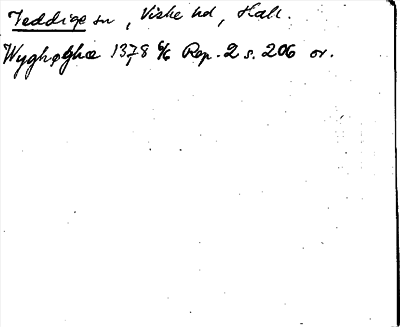 Veddige sn, Viske hd, Hall.
Wyghøghæ 1378 6/6 Rep. 2 s. 206 or.